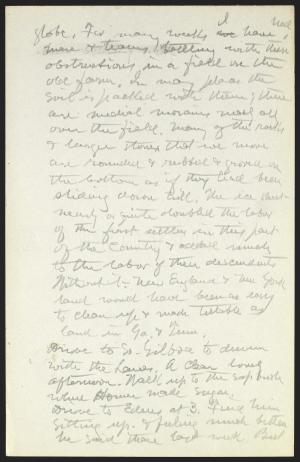 I had
globe. For many weeks we have
men & teams battling with these
obstructions in a field on the
old farm. In many places the
soil is packed with them; there
are medial moraines near all
over the field. Many of the rocks
& larger stones that we move
are rounded & rubbed & grooved on
the bottom as if they had been
sliding down hill. The ice sheet
nearly or quite doubled the labor
of the first settlers in this part
of the country & added much
to the labor of their descendants
Without it New England & New York
land would have been as easy
to clean up & make tillable as
land in Ga. & Tenn.
Drove to So. Gilboa to dinner
with the Lanes. A clear lovely
afternoon. Walk up to the sap bush
where Homer made sugar.
Drove to Edens at 3. Find him
sitting up & feeling much better
he said than last week. But